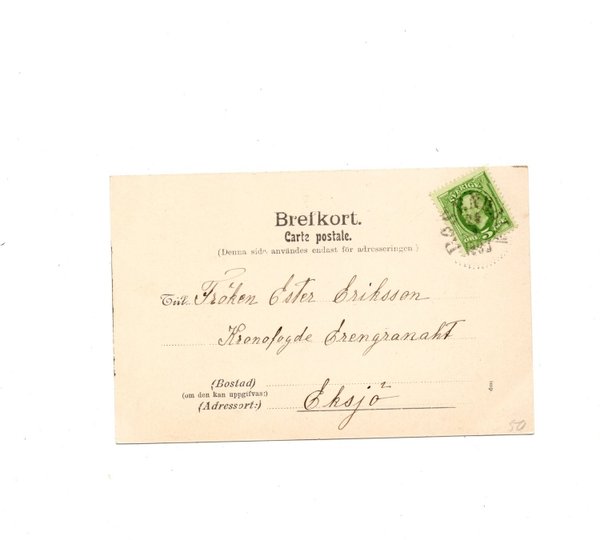 SVERIGE
Brefkort.
Carte postale.
(Denna side användes endast för adresseringen)
Till Fröken Ester Eriksson
Kronofogde Erengranaht
(Bostad)
(om den kan uppgifvas:)
(Adressort:) Eksjö
50